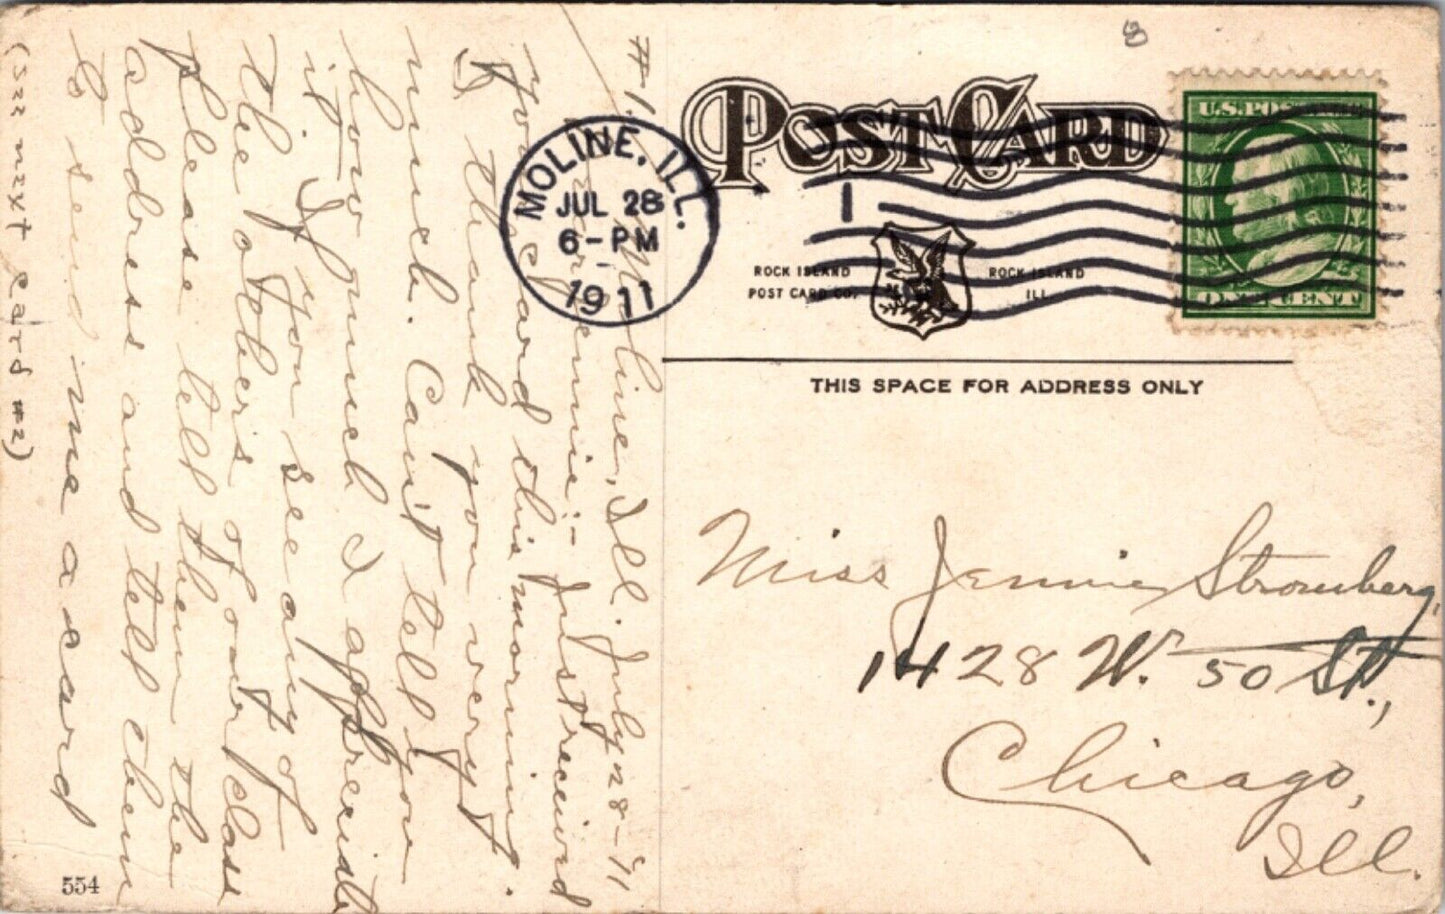 #1.
Moline, Ill. July 28-'11
Jennie:- Just received
your card this morning.
I thank you very
much. Can't tell you
how much I appreciate
it. If you see any of
the others of our class
please tell them the
address and tell them
to send me a card
(see next card #2)
554
POST CARD
MOLINE, ILL.
JUL 28
6-PM
1911
1
U.S. POSTAGE
ONE CENT
ROCK ISLAND
POST CARD CO.
ROCK ISLAND
ILL.
THIS SPACE FOR ADDRESS ONLY
Miss Jennie Stromberg,
1428 W. 50 St.,
Chicago,
Ill.